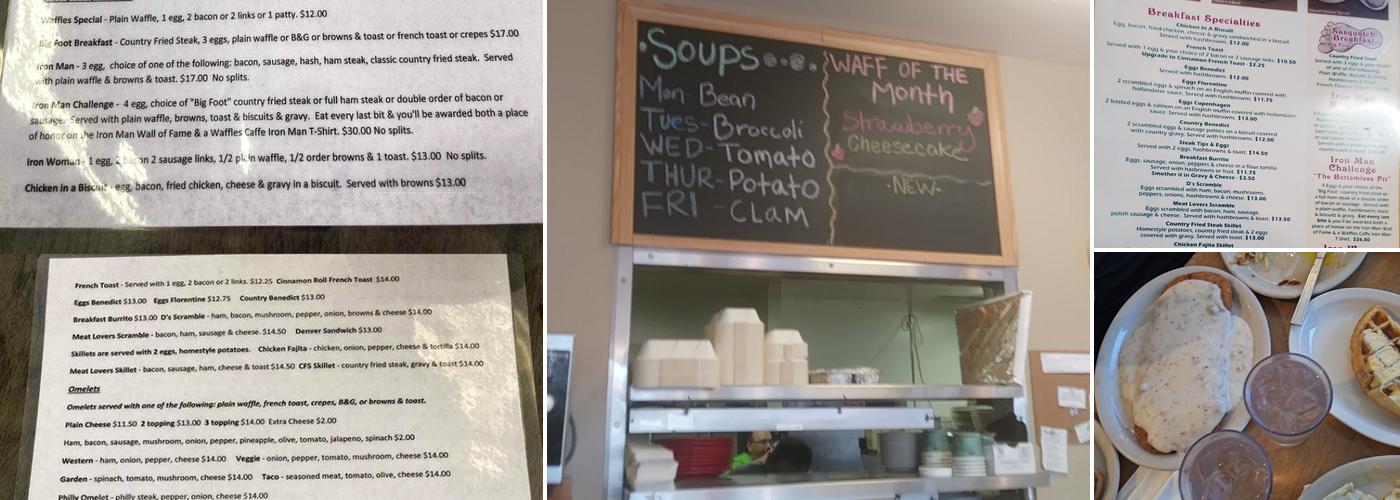 Waffles Special - Plain Waffle, 1 egg, 2 bacon or 2 links or 1 patty. $12.00
Big Foot Breakfast - Country Fried Steak, 3 eggs, plain waffle or B&G or browns & toast or french toast or crepes $17.00
Iron Man - 3 egg, choice of one of the following: bacon, sausage, hash, ham steak, classic country fried steak. Served
with plain waffle & browns & toast. $17.00 No splits.
Iron Man Challenge - 4 egg, choice of "Big Foot" country fried steak or full ham steak or double order of bacon or
sausage. Served with plain waffle, browns, toast & biscuits & gravy. Eat every last bit & you'll be awarded both a place
of honor on the Iron Man Wall of Fame & a Waffles Caffe Iron Man T-Shirt. $30.00 No splits.
Iron Woman - 1 egg, 2 bacon 2 sausage links, 1/2 plain waffle, 1/2 order browns & 1 toast. $13.00 No splits.
Chicken in a Biscuit - egg, bacon, fried chicken, cheese & gravy in a biscuit. Served with browns $13.00
French Toast - Served with 1 egg, 2 bacon or 2 links. $12.25 Cinnamon Roll French Toast $14.00
Eggs Benedict $13.00 Eggs Florentine $12.75 Country Benedict $13.00
Breakfast Burrito $13.00 D's Scramble - ham, bacon, mushroom, pepper, onion, browns & cheese $14.00
Meat Lovers Scramble - bacon, ham, sausage & cheese. $14.50 Denver Sandwich $13.00
Skillets are served with 2 eggs, homestyle potatoes. Chicken Fajita - chicken, onion, pepper, cheese & tortilla $14.00
Meat Lovers Skillet - bacon, sausage, ham, cheese & toast $14.50 CFS Skillet - country fried steak, gravy & toast $14.00
Omelets
Omelets served with one of the following: plain waffle, french toast, crepes, B&G, or browns & toast.
Plain Cheese $11.50 2 topping $13.00 3 topping $14.00 Extra Cheese $2.00
Ham, bacon, sausage, mushroom, onion, pepper, pineapple, olive, tomato, jalapeno, spinach $2.00
Western - ham, onion, pepper, cheese $14.00 Veggie - onion, pepper, tomato, mushroom, cheese $14.00
Garden - spinach, tomato, mushroom, cheese $14.00 Taco - seasoned meat, tomato, olive, cheese $14.00
Philly Omelet - philly steak, pepper, onion, cheese $14.00
Soups
Mon - Bean
Tues - Broccoli
WED - Tomato
THUR - Potato
FRI - CLAM
WAFF OF THE
MONTH
Strawberry
Cheesecake
- NEW -
Breakfast Specialties
Chicken In A Biscuit
Egg, bacon, fried chicken, cheese & gravy sandwiched in a biscuit.
Served with hashbrowns. $12.00
French Toast
Served with 1 egg & your choice of 2 bacon or 2 sausage links. $10.50
Upgrade to Cinnamon French Toast - $2.25
Eggs Benedict
Served with hashbrowns. $12.00
Eggs Florentine
2 scrambled eggs & spinach on an English muffin covered with
hollandaise sauce. Served with hashbrowns. $11.75
Eggs Copenhagen
2 basted eggs & salmon on an English muffin covered with hollandaise
sauce. Served with hashbrowns. $13.00
Country Benedict
2 scrambled eggs & sausage patties on a biscuit covered
with country gravy. Served with hashbrowns. $12.00
Steak Tips & Eggs
Served with 2 eggs, hashbrowns & toast. $14.50
Breakfast Burrito
Eggs, sausage, onion, peppers & cheese in a flour tortilla.
Served with hashbrowns or fruit. $11.75
Smother it in Gravy & Cheese - $3.50
D's Scramble
Eggs scrambled with ham, bacon, mushrooms,
peppers, onions, hashbrowns & cheese. $13.00
Meat Lovers Scramble
Eggs scrambled with bacon, ham, sausage,
polish sausage & cheese. Served with hashbrowns & toast. $13.50
Country Fried Steak Skillet
Homestyle potatoes, country fried steak & 2 eggs
covered with gravy. Served with toast. $13.00
Chicken Fajita Skillet
Sasquatch
Breakfast
Country Fried Steak
Iron Man
Challenge
"The Bottomless Pit"
4 Eggs & your choice of the
"Big Foot" country fried steak or
a full ham steak or a double order
of bacon or sausage. Served with
a plain waffle, hashbrowns, toast
& biscuits & gravy. Eat every last
bite & you'll be awarded both a
place of honor on the Iron Man Wall
of Fame & a Waffles Caffe Iron Man
T-Shirt. $26.50